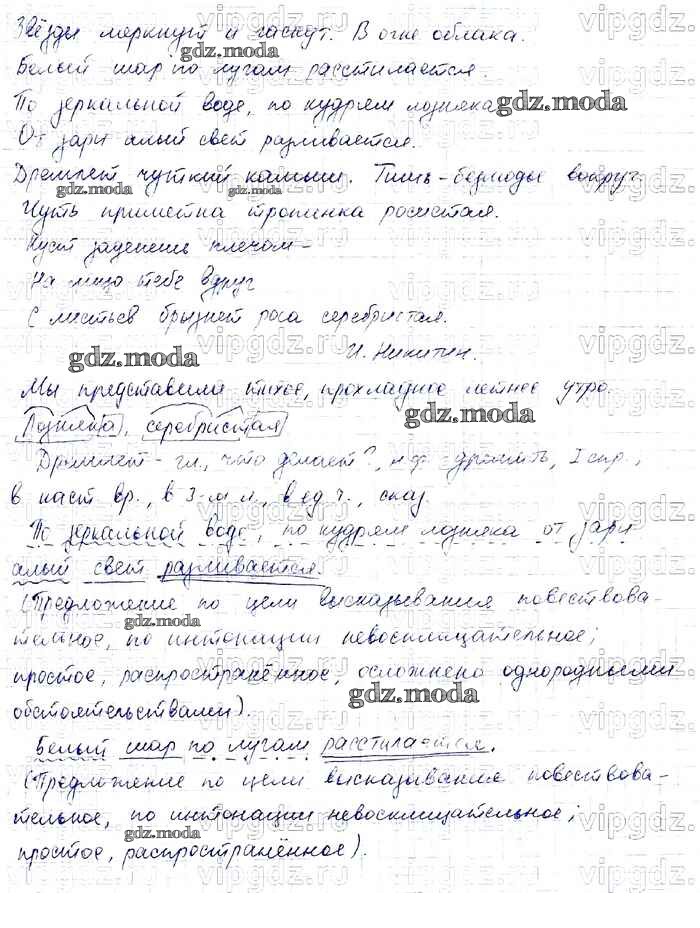 Звёзды меркнут и гаснут. В огне облака.
Белый пар по лугам расстилается.
По зеркальной воде, по кудрям лозняка
От зари алый свет разливается.
Дремлет чуткий камыш. Тишь-безлюдье вокруг.
Чуть приметна тропинка росистая.
Куст заденешь плечом –
На лицо тебе вдруг
С листьев брызнет роса серебристая.
И. Никитин.
Мы представили тихое, прохладное летнее утро.
Лозняк(а), серебристая
Дремлет – гл., что делает?, н.ф. дремать, I спр.,
в наст. вр., в 3-м л., в ед. ч., сказ.
По зеркальной воде, по кудрям лозняка от зари
алый свет разливается.
(Предложение по цели высказывания повествова-
тельное, по интонации невосклицательное;
простое, распространённое, осложнено однородными
обстоятельствами).
Белый пар по лугам расстилается.
(Предложение по цели высказывания повествова-
тельное, по интонации невосклицательное;
простое, распространённое).
gdz.moda
vipgdz.ru